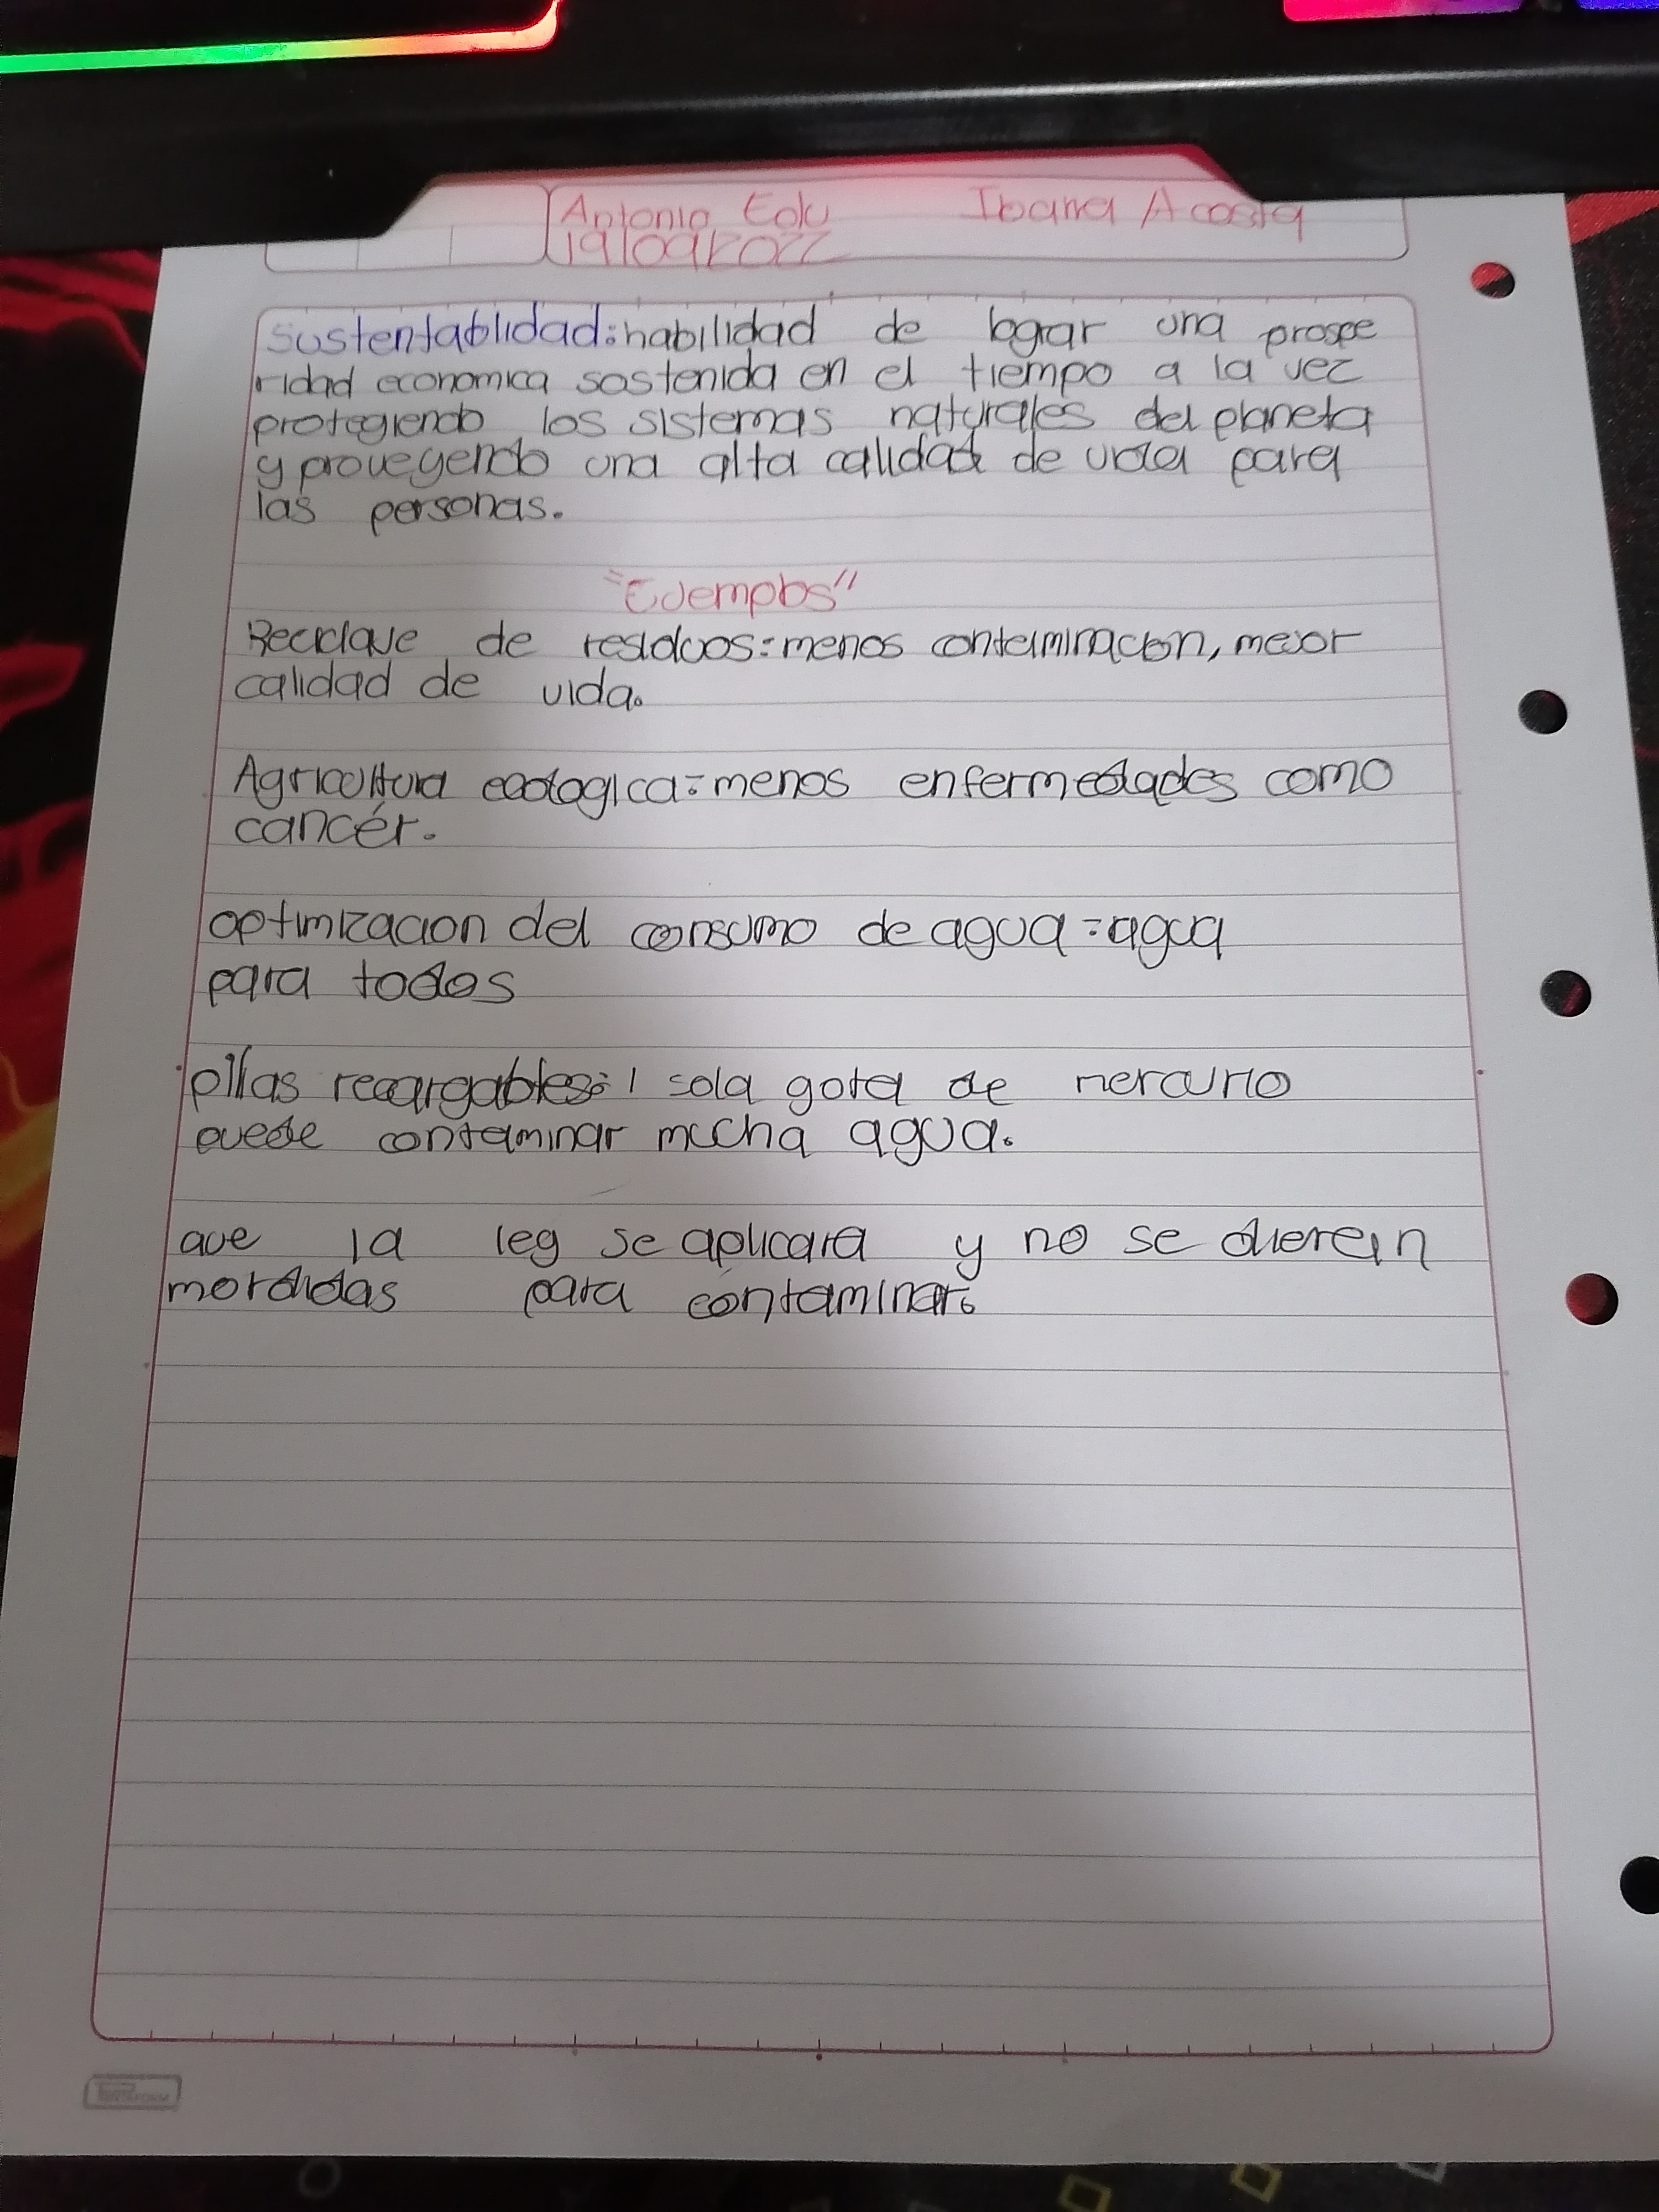 Antonio Edu Ibarra Acosta
19/09/2022
sustentablidad:habilidad de lograr una prospe
ridad economica sostenida en el tiempo a la vez
protegiendo los sistemas naturales del planeta
y proveyendo una alta calidad de vida para
las personas.
"Ejemplos"
Reciclaje de residuos:menos contaminacion, mejor
calidad de vida.
Agricultura ecologica:menos enfermedades como
cancér.
optimizacion del consumo de agua:agua
para todos
pilas recargables:1 sola gota de mercurio
puede contaminar mucha agua.
que la ley se aplicara y no se dieran
mordidas para contaminar.